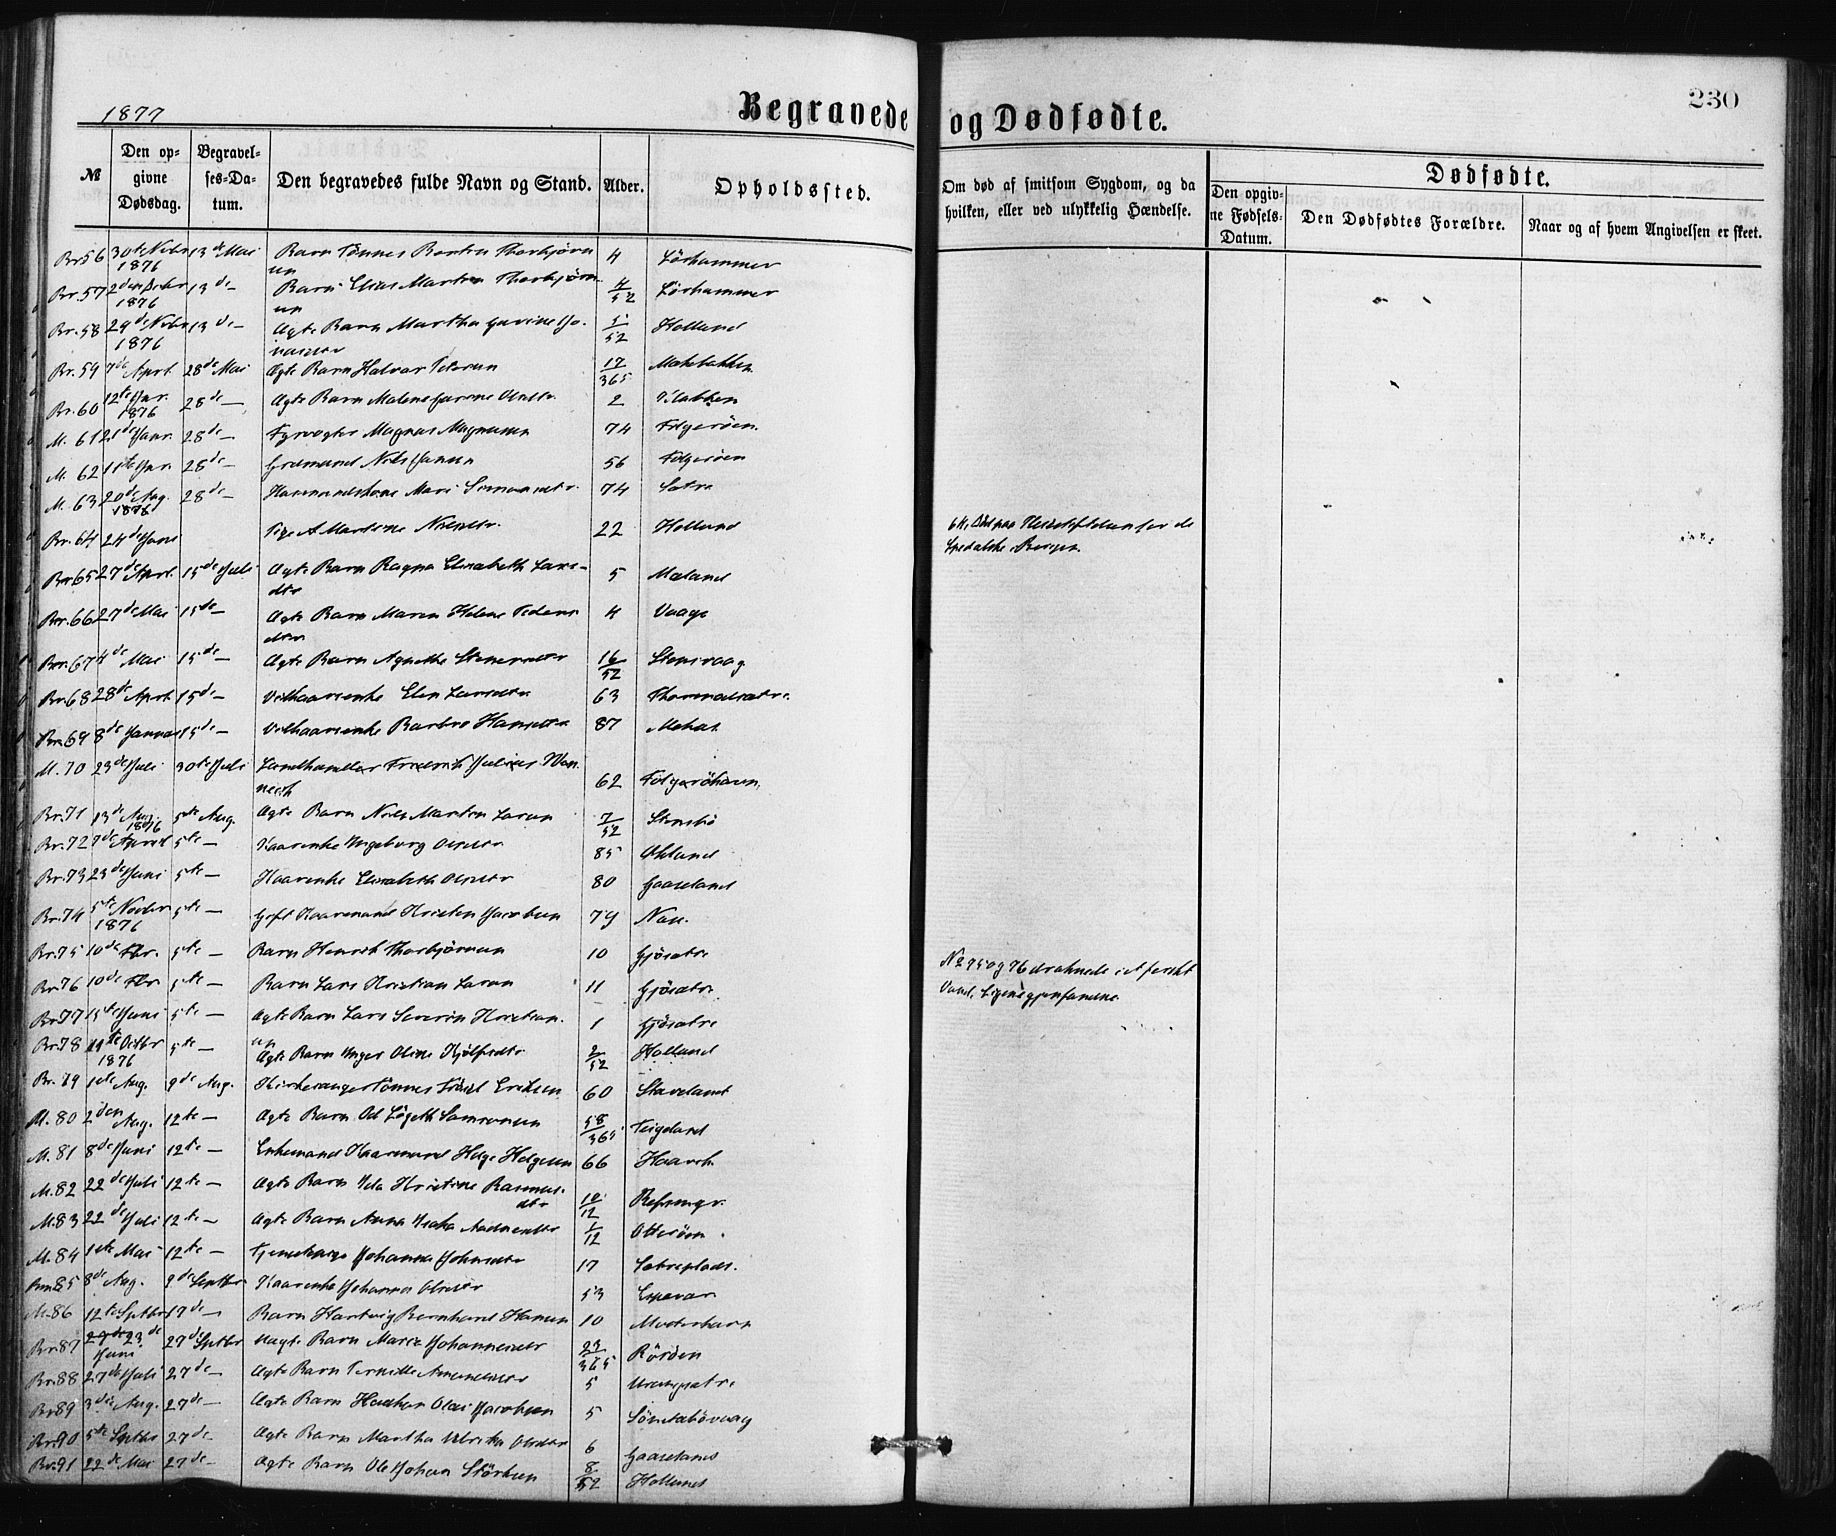 1877
Begravede og Dødfødte.
230
№
Den opgivne Dødsdag.
Begravelses-Datum.
Den begravedes fulde Navn og Stand.
Alder.
Opholdssted.
Om død af smitsom Sygdom, og da hvilken, eller ved ulykkelig Hændelse.
Dødfødte.
Den opgivne Fødsels-Datum.
Den Dødfødtes Forældre.
Naar og af hvem Angivelsen er skeet.
Br. 56 30te Novbr 1876 13de Mai Barn Tönnes Thorbjörnsen 4 Lörhammer
Br. 57 2den Decbr 1876 13de — Barn Elias Marten Thorbjörnsen 4/52 Lörhammer
Br. 58 29de Novbr 1876 13de — Ægte Barn Martha 5/52 Holland
Br. 59 7de Aprl. 28de Mai Ægte Barn Halvor Petersen 17/365
Br. 60 12te Jan. 1876 28de — Ægte Barn Malene Olsdtr 2
M. 61 21de Janr. 28de — Magnus Magnusen 74 Folgeröen
M. 62 11te Jan 28de — Nils Jansen 56 Folgeröen
M. 63 20de Aug. 1876 28de — Huusmandskone Mari Simonsdtr 74 Sætre
Br. 64 24de Juni Pige A. Martine Nilsdtr. 22 Holland 64, Död paa Pleiestiftelsen for de Spedalske i Bergen
Br. 65 27de Aprl. 15de Juli Ægte Barn Ragna Elisabeth Larsdtr 5 Mæland
Br. 66 27de Mai 15de — Ægte Barn Maren Helene Pedersdtr 4 Vaage
Br. 67 4de Mai 15de — Ægte Barn Agnethe 16/52 Stensvaag
Br. 68 28de Aprl. 15de — Vilkaarsenke Elen Larsdtr 63
Br. 69 8de Januar 15de — Vilkaarsenke Barbro Hansdtr 87
M. 70 23de Juli 30te Juli Landhandler Fredrik Julius 62 Folgeröhavn
Br. 71 13de Aug. 1876 5te Aug. Ægte Barn Nils Marten Larsen 7/52 Stensbö
Br. 72 7de April 5te — Kaarenke Ingeborg Olsdtr 85 Økland
Br. 73 23de Juni 5te — Kaarenke Elisabeth Olsdtr 80 Gaaseland
Br. 74 5te Novbr 1876 5te — Gift Kaarmand Kristen Jacobsen 79
Br. 75 10de Fbr. 5te — Barn Henrik Thorbjörnsen 10 Gjösætre
Br. 76 10de Fbr 5te — Barn Lars Kristian Larsen 11 Gjösætre No 75 og 76 druknede i et ferskt Vand, Ligene gjenfundne.
Br. 77 15te Juni 5te — Ægte Barn Lars Severin Kristiansen 1 Gjösætre
Br. 78 11te Octbr 1876 5te — Ægte Barn Inger Oline 2/52 Holland
Br. 79 1ste Aug. 9de Aug. Kirkesanger Tönnes Eriksen 60 Staveland
M. 80 2den Aug. 12te — Ægte Barn 58/365 Teigland
M. 81 8de Juni 12te — Enkemand Kaarmand Helge Helgesen 66
M. 82 22de Juli 12te — Ægte Barn Ida Kristine Rasmusdtr 10/12
M. 83 22de Juli 12te — Ægte Barn Anna 1/12 Otteröen
M. 84 1ste Mai 12te — Johanna Johnsdtr 17
Br. 85 8de Aug. 9de Septbr Kaarenke Johanna Olsdtr 53 Espevær
M. 86 12te Septbr 17de — Barn Hartvig Bernhard Hansen 10 Mosterhavn
Br. 87 23de Juni 27de Septbr Uægte Barn Marie Johannesdtr 23/365
Br. 88 27de Juli 27de — Ægte Barn Pernille 5
Br. 89 3die Aug. 27de — Ægte Barn Olai Jacobsen 5
Br. 90 5te Septbr 27de — Ægte Barn Martha Ulrikka Olsdtr 6 Gaaseland
Br. 91 22de Mai 27de — Ægte Barn Ole Johan Störksen 8/52 Holland